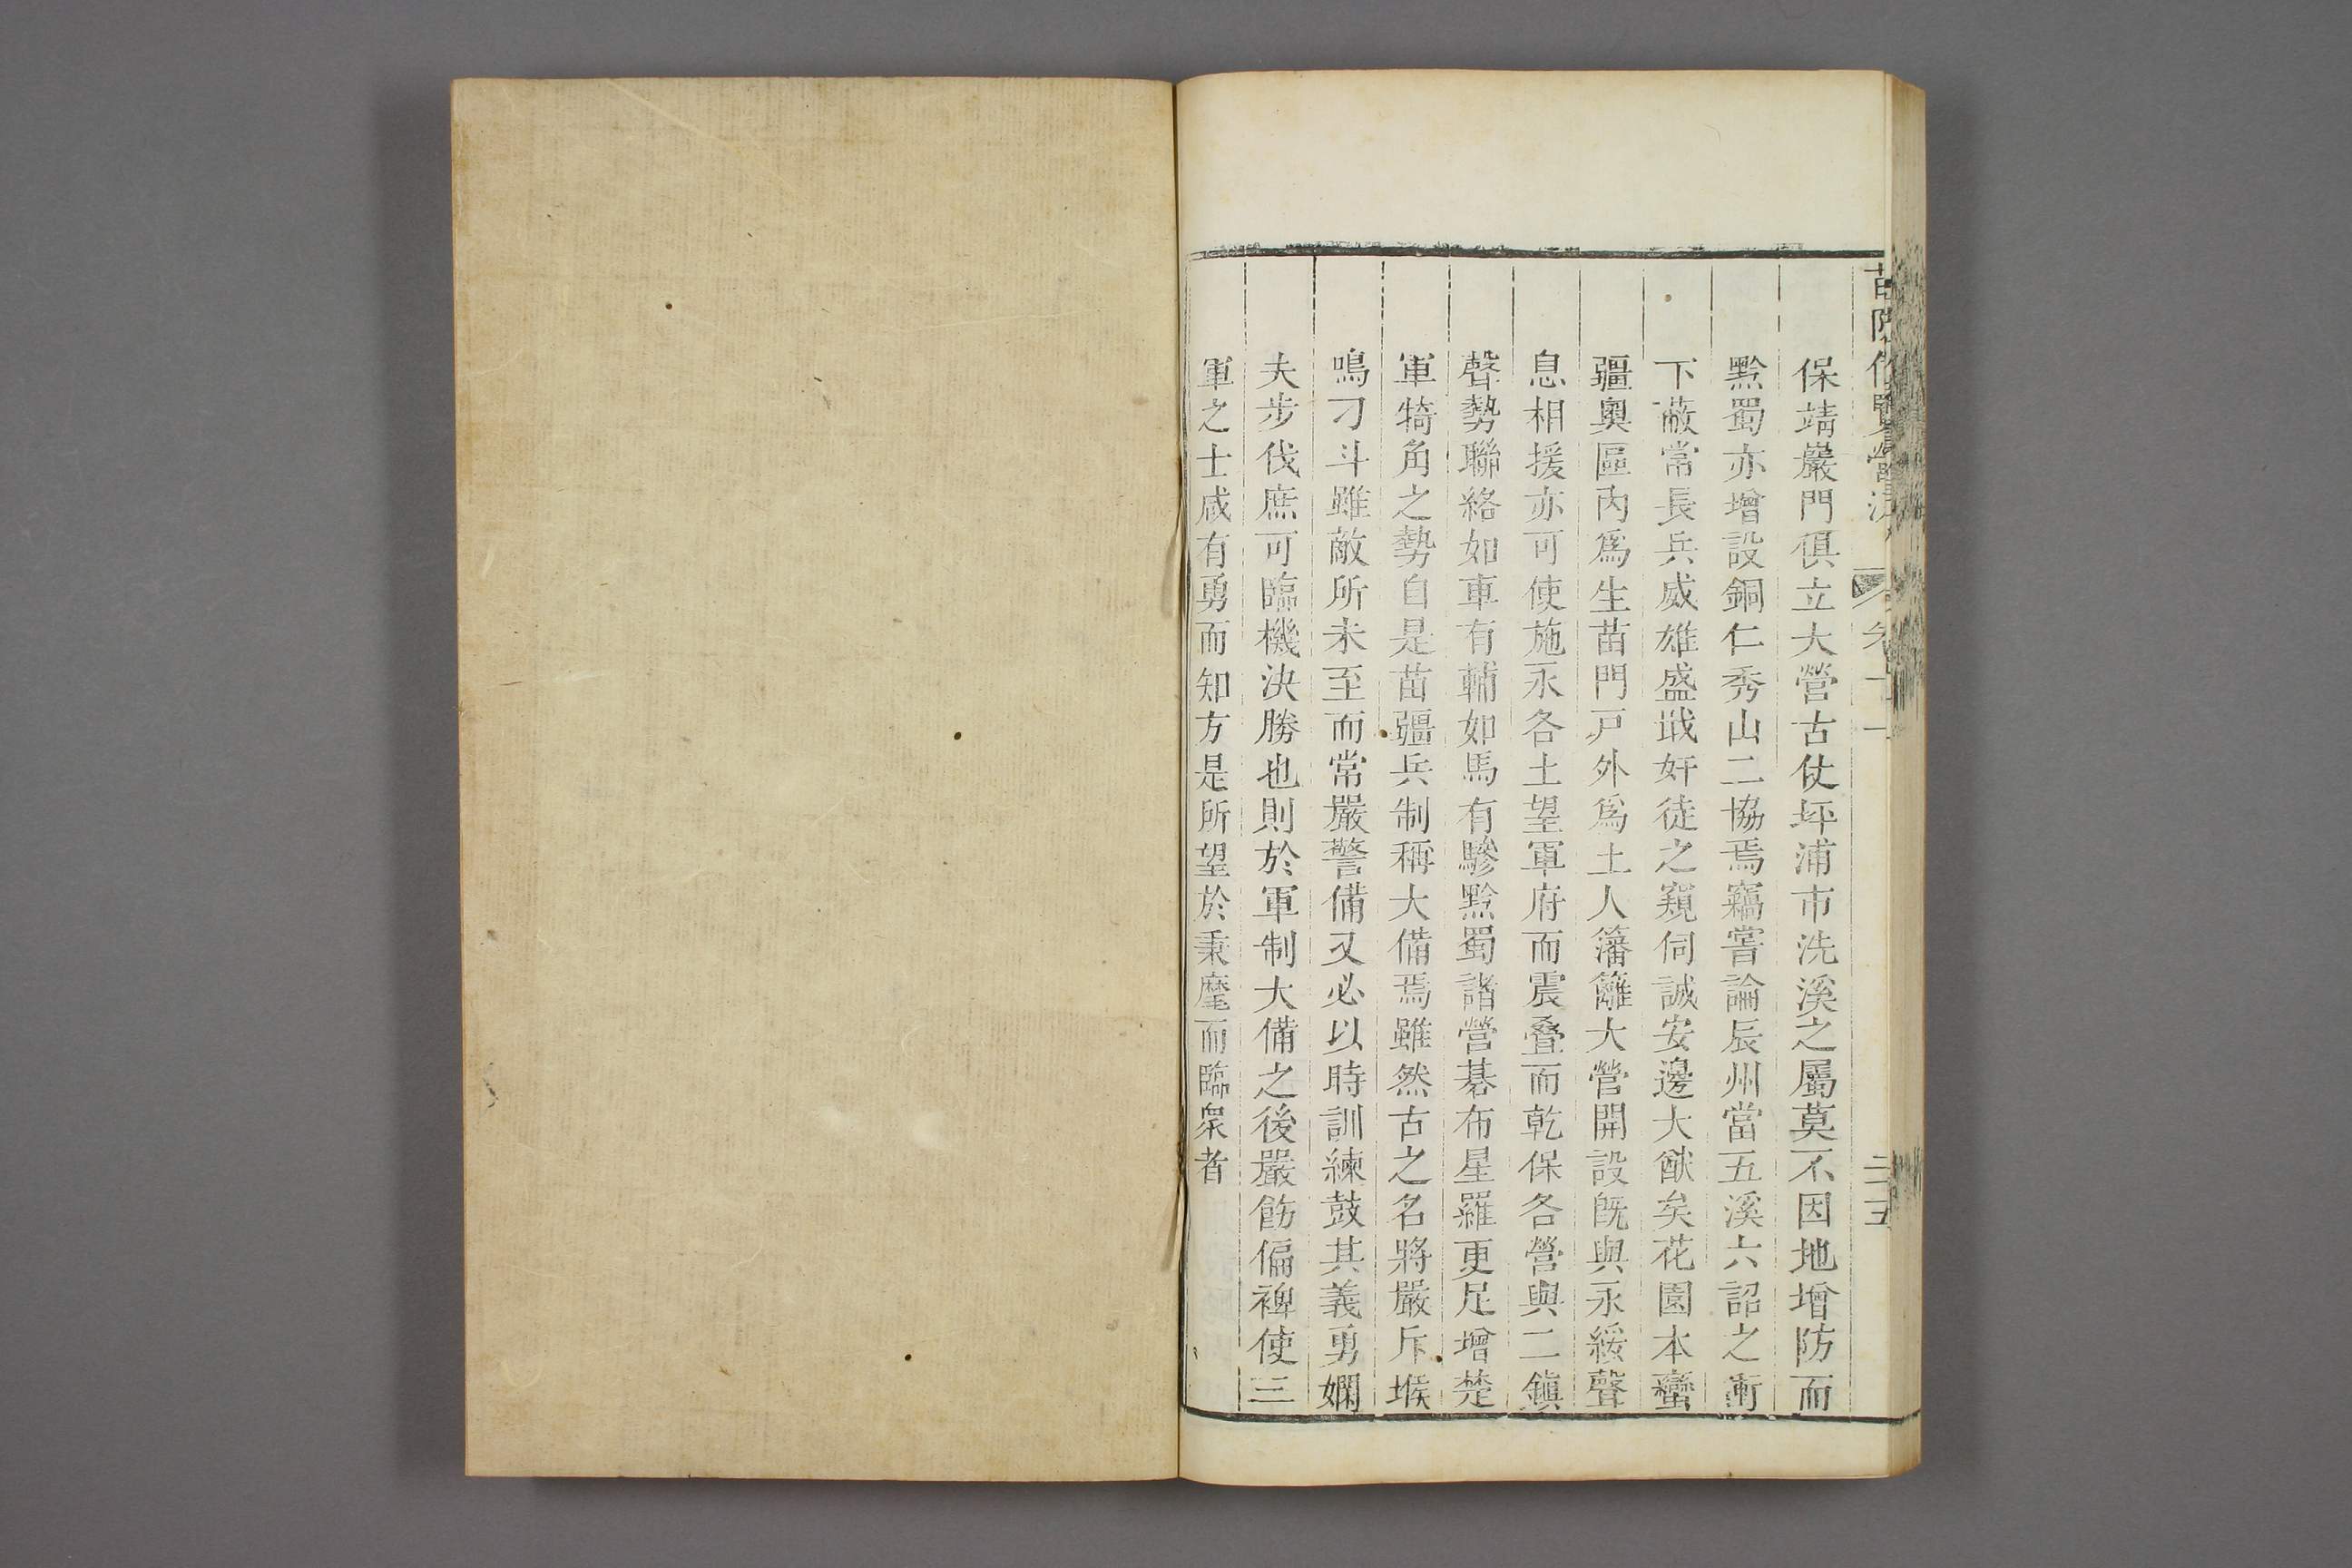 苗防備覽
卷十一
三五
保靖巖門俱立大營古仗坪浦市洗溪之屬莫不因地增防而
黔蜀亦增設銅仁秀山二協焉竊嘗論辰州當五溪六詔之衝
下蔽常長兵威雄盛戢奸徒之窺伺誠安邊大猷矣花園本蠻
疆奧區內爲生苗門戸外爲土人籓籬大營開設旣與永綏聲
息相援亦可使施永各土望軍府而震疊而乾保各營與二鎭
聲勢聯絡如車有輔如馬有驂黔蜀諸營碁布星羅更足增楚
軍犄角之勢自是苗疆兵制稱大備焉雖然古之名將嚴斥堠
鳴刁斗雖敵所未至而常嚴警備又必以時訓練鼓其義勇嫻
夫步伐庶可臨機決勝也則於軍制大備之後嚴飭偏裨使三
軍之士咸有勇而知方是所望於秉麾而臨衆者